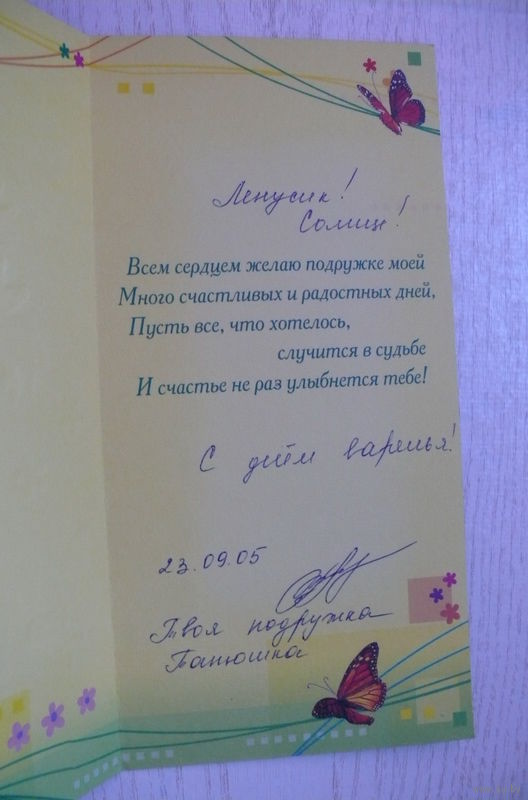 Ленусик!
Солнц!
Всем сердцем желаю подружке моей
Много счастливых и радостных дней,
Пусть все, что хотелось,
случится в судьбе
И счастье не раз улыбнется тебе!
С днём варенья!
23.09.05
Твоя подружка
Танюшка